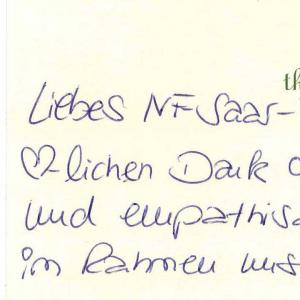 th
Liebes NF-Saar-
♡-lichen Dank
und empathis
im Rahmen uns